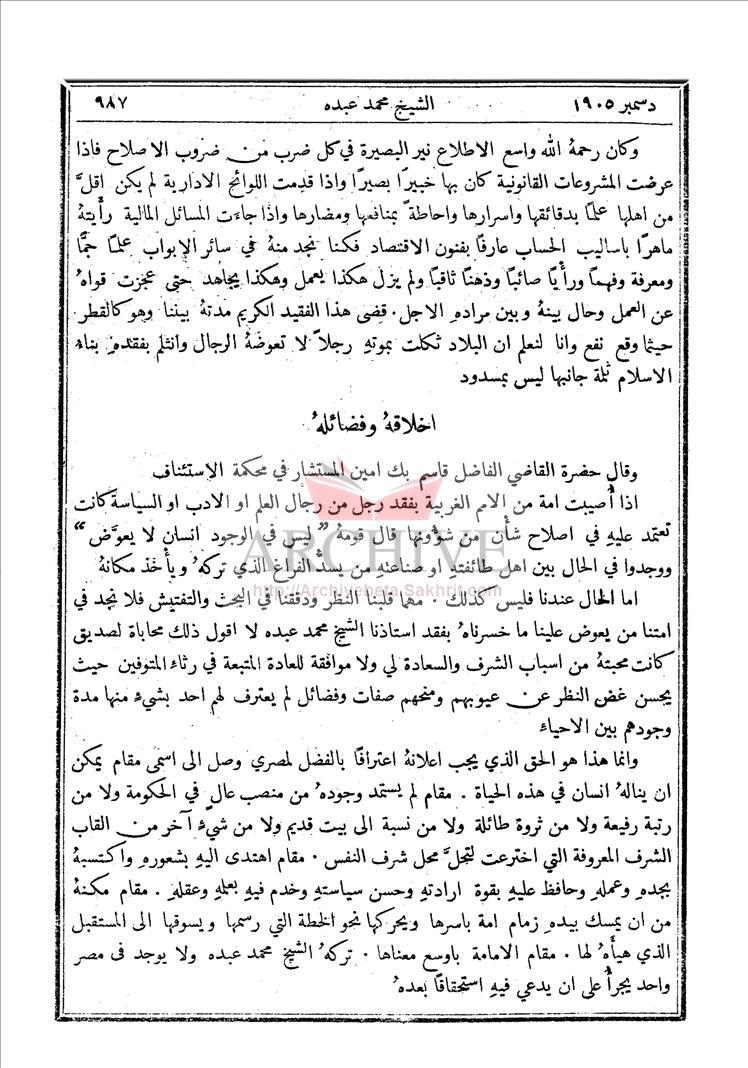 دسمبر ١٩٠٥ الشيخ محمد عبده ٩٨٧
وكان رحمهُ الله واسع الاطلاع نير البصيرة في كل ضرب من ضروب الاصلاح فاذا
عرضت المشروعات القانونية كان بها خبيرًا بصيرًا واذا قدمت اللوائح الادارية لم يكن اقلَّ
من اهلها علمًا بدقائقها واسرارها واحاطة بمنافعها ومضارها واذا جاءت المسائل المالية رأيتهُ
ماهرًا باساليب الحساب عارفًا بفنون الاقتصاد فكنا نجد منهُ في سائر الابواب علمًا جمًّا
ومعرفة وفهمًا ورأيًا صائبًا وذهنًا ثاقبًا ولم يزل هكذا يعمل وهكذا يجاهد حتى عجزت قواهُ
عن العمل وحال بينهُ وبين مرادهِ الاجل. قضى هذا الفقيد الكريم مدتهُ بيننا وهو كالقطر
حيثما وقع نفع وانا لنعلم ان البلاد ثكلت بموتهِ رجلاً لا تعوضهُ الرجال وانثلم بفقدهِ بناء
الاسلام ثلمة جانبها ليس بمسدود
اخلاقهُ وفضائلهُ
وقال حضرة القاضي الفاضل قاسم بك امين المستشار في محكمة الاستئناف
اذا أصيبت امة من الامم الغربية بفقد رجل من رجال العلم او الادب او السياسة كانت
تعتمد عليهِ في اصلاح شأن من شؤونها قال قومهُ " ليس في الوجود انسان لا يعوَّض "
ووجدوا في الحال بين اهل طائفتهِ او صناعتهِ من يسدُّ الفراغ الذي تركهُ ويأخذ مكانهُ
اما الحال عندنا فليس كذلك . مهما قلبنا النظر ودققنا في البحث والتفتيش فلا نجد في
امتنا من يعوض علينا ما خسرناهُ بفقد استاذنا الشيخ محمد عبده لا اقول ذلك محاباة لصديق
كانت محبتهُ من اسباب الشرف والسعادة لي ولا موافقة للعادة المتبعة في رثاء المتوفين حيث
يحسن غض النظر عن عيوبهم ومنحهم صفات وفضائل لم يعترف لهم احد بشيءٍ منها مدة
وجودهم بين الاحياء
وانما هذا هو الحق الذي يجب اعلانهُ اعترافًا بالفضل لمصري وصل الى اسمى مقام يمكن
ان ينالهُ انسان في هذه الحياة . مقام لم يستمد وجودهُ من منصب عالٍ في الحكومة ولا من
رتبة رفيعة ولا من ثروة طائلة ولا من نسبة الى بيت قديم ولا من شيءٍ آخر من القاب
الشرف المعروفة التي اخترعت لتجلَّ محل شرف النفس . مقام اهتدى اليهِ بشعورهِ واكتسبهُ
بجدهِ وعملهِ وحافظ عليهِ بقوة ارادتهِ وحسن سياستهِ وخدم فيهِ بعلمهِ وعقلهِ . مقام مكنهُ
من ان يمسك بيدهِ زمام امة باسرها ويحركها نحو الخطة التي رسمها ويسوقها الى المستقبل
الذي هيأهُ لها . مقام الامامة باوسع معناها . تركهُ الشيخ محمد عبده ولا يوجد في مصر
واحد يجرأُ على ان يدعي فيهِ استحقاقًا بعدهُ
ARCHIVE
http://Archivebeta.Sakhrit.com